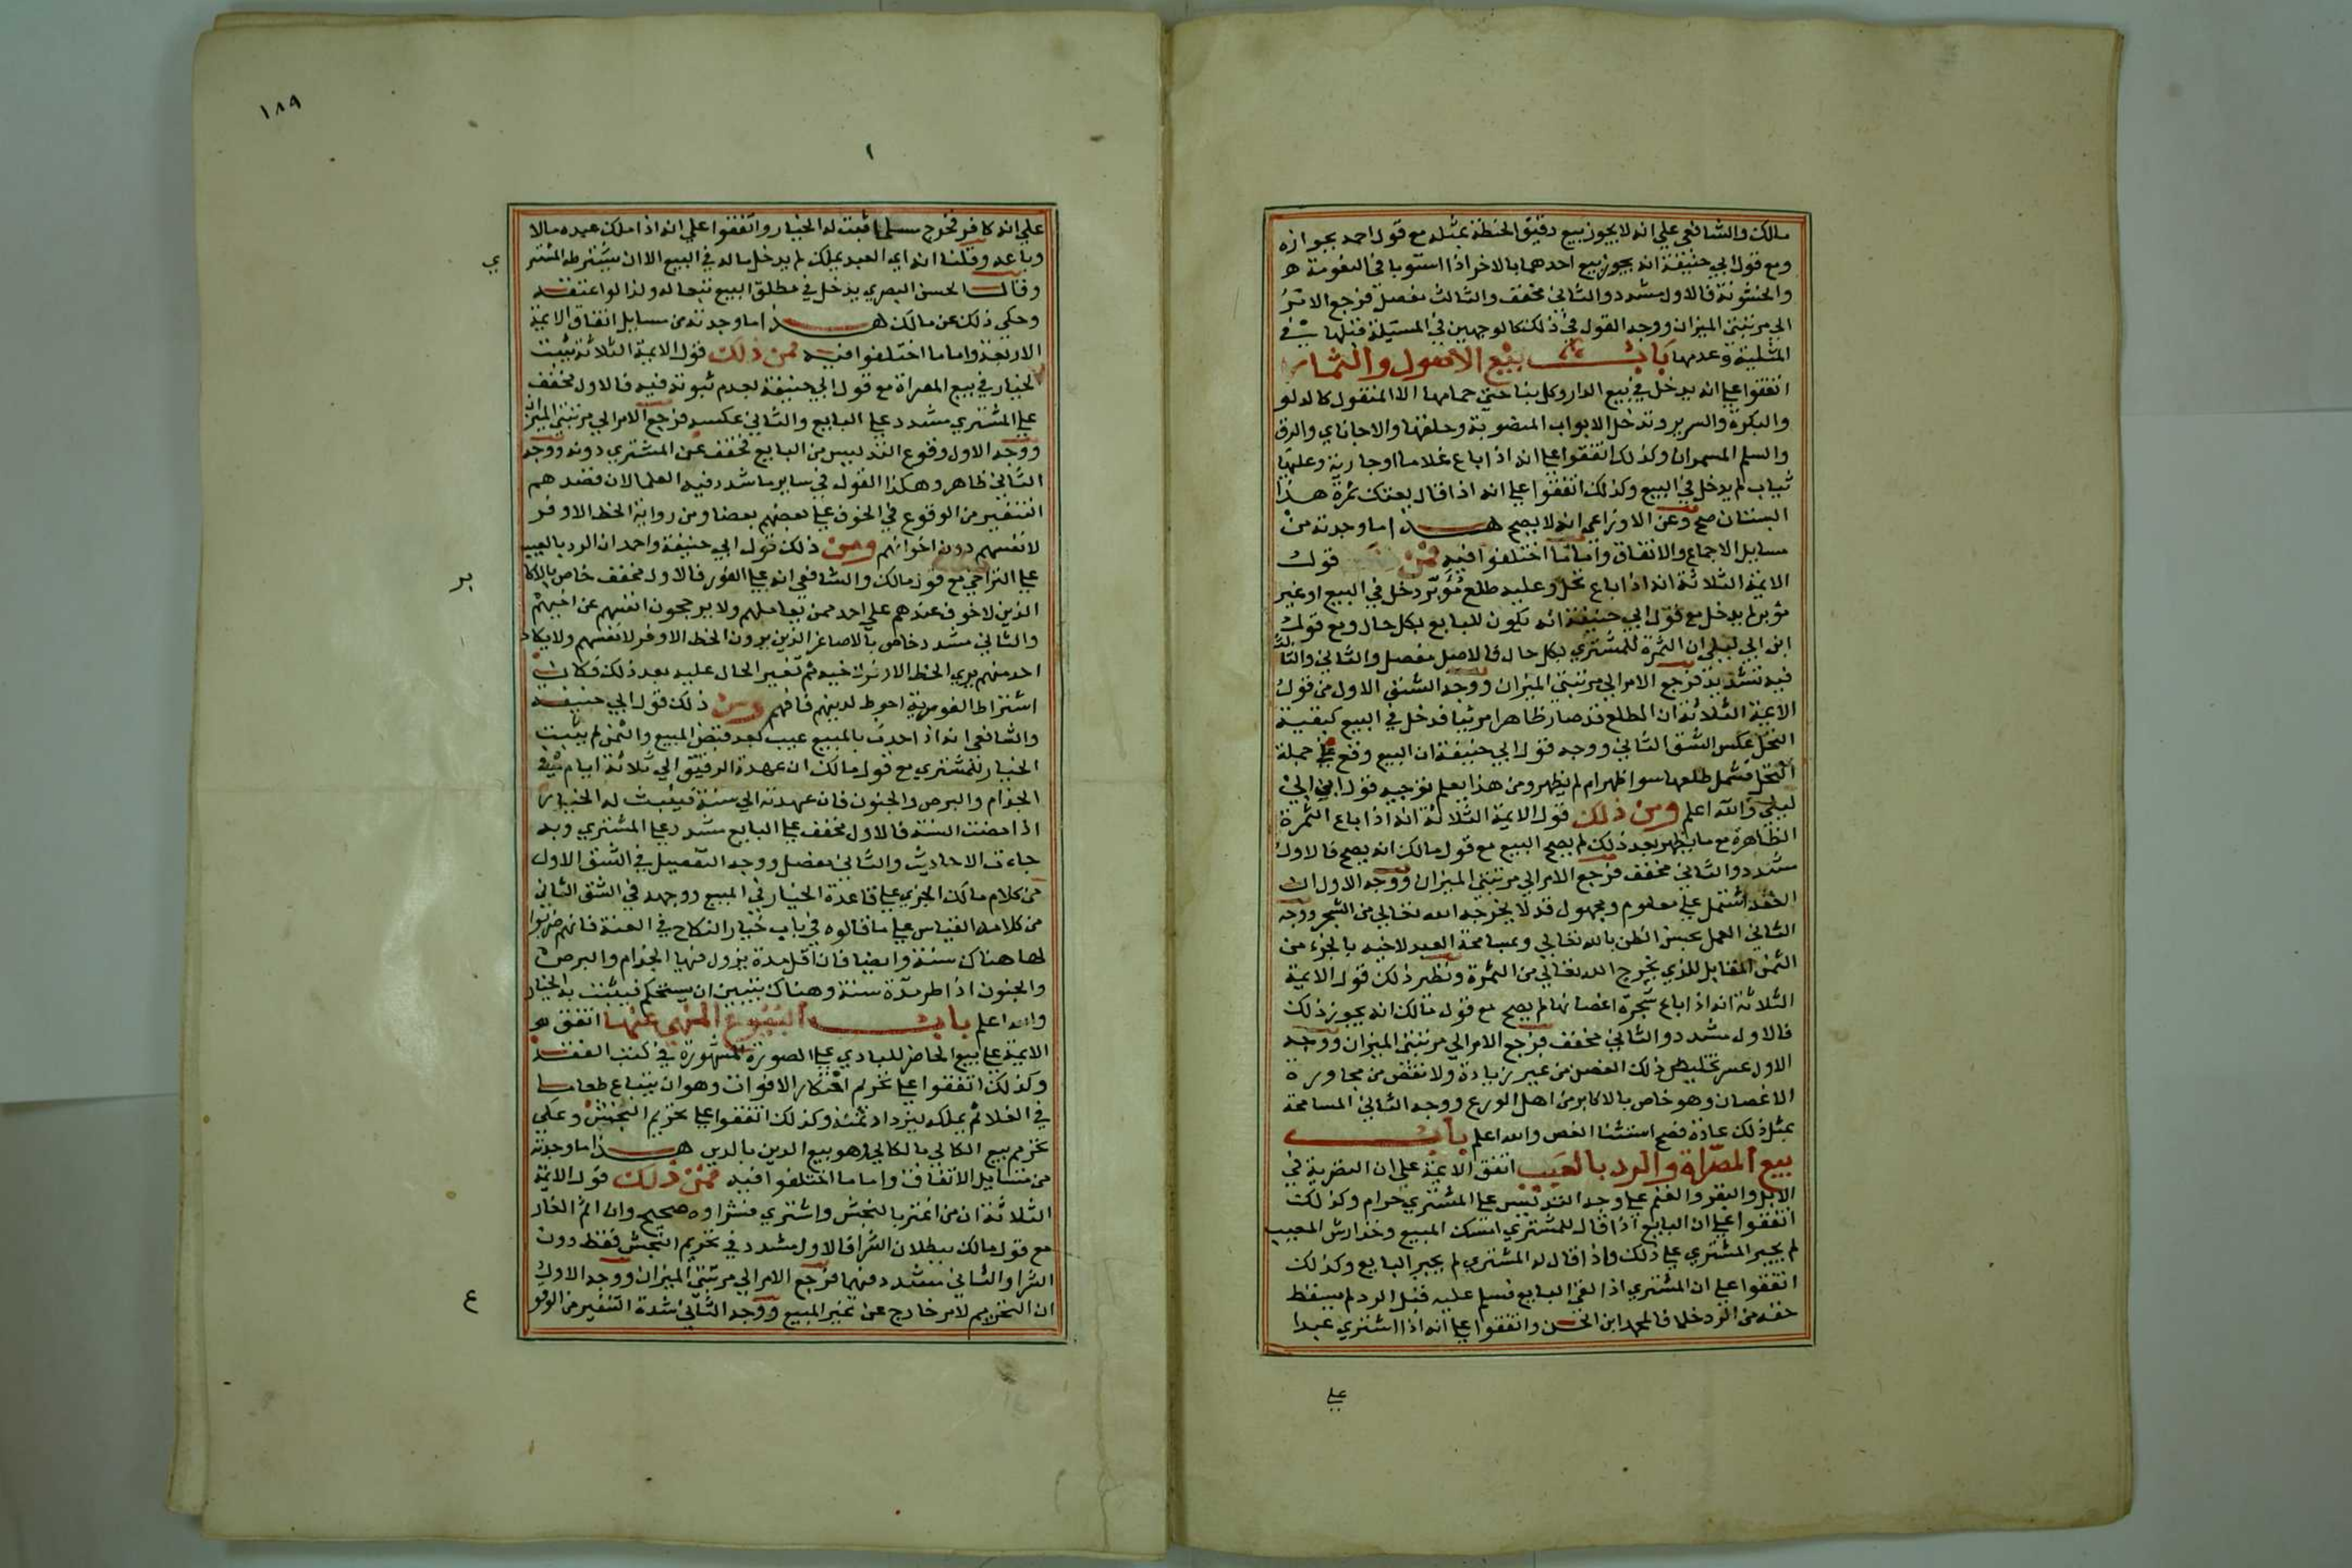 مالك والشافعي علي انه لا يجوز بيع دقيق الحنطة بمثله مع قول احمد بجوازه
ومع قول ابي حنيفة انه يجوز بيع احدهما بالاخر اذا استويا في النعومة
والخشونة فالاول مشدد والثاني مخفف والثالث مفصل فرجع الامر
الي مرتبتي الميزان ووجه القول في ذلك كالوجهين في المسئلة قبلها في
المثلية وعدمها باب بيع الاصول والثمار
اتفقوا علي انه يدخل في بيع الدار وكل بنا حتي حمامها الا المنقول كالدلو
والبكرة والسرير وتدخل الابواب المنصوبة وحلقها والاجاناي والرق
والسلم المسمران وكذلك اتفقوا علي انه اذا باع غلاما او جارية وعليها
ثياب لم يدخل في البيع وكذلك اتفقوا علي انه اذا قال بعتك ثمرة هذا
البستان صح وعن الاوزاعي انه لا يصح هذا ما وجدته من
مسايل الاجماع والاتفاق واما ما اختلفوا فيه فمن قول
الايمة الثلاثة انه اذا باع نخل وعليه طلع مؤبر دخل في البيع او غير
مؤبر لم يدخل مع قول ابي حنيفة انه يكون للبايع بكل حال ومع قول
ابن ابي ليلي ان الثمرة للمشتري بكل حال فالاصل مفصل والثاني والثالث
فيه تشديد فرجع الامر الي مرتبتي الميزان ووجه الشق الاول من قول
الايمة الثلاثة ان المطلع قد صار ظاهرا مرئيا فدخل في البيع كبقية
النخل عكس الشق الثاني ووجه قول ابي حنيفة ان البيع وقع علي جملة
النخل فشمل طلعها سوا ظهر ام لم يظهر ومن هذا يعلم توجيه قول ابن ابي
ليلي والله اعلم ومن ذلك قول الايمة الثلاثة انه اذا باع الثمرة
الظاهرة مع ما يظهر بعد ذلك لم يصح البيع مع قول مالك انه يصح فالاول
مشدد والثاني مخفف فرجع الامر الي مرتبتي الميزان ووجه الاول ان
العقد اشتمل علي معلوم ومجهول قد لا يخرجه الله تعالي من الشجر ووجه
الثاني العمل بحسن الظن بالله تعالي وبمسامحة العبد لاخيه بالجزء من
الثمن المقابل للذي يخرج الله تعالي من الثمرة ونظير ذلك قول الايمة
الثلاثة انه اذا باع شجرة اغصانها لم يصح مع قول مالك انه يجوز ذلك
فالاول مشدد والثاني مخفف فرجع الامر الي مرتبتي الميزان ووجه
الاول عسر تخليص ذلك الغصن من غير زيادة ولا نقص من مجاورة
الاغصان وهو خاص بالاكابر من اهل الورع ووجه الثاني المسامحة
بمثل ذلك عادة فصح استثنا الغصن والله اعلم باب
بيع المصراة والرد بالعيب اتفق الايمة علي ان التصرية في
الابل والبقر والغنم علي وجه التدليس علي المشتري حرام وكذلك
اتفقوا علي ان البايع اذا قال للمشتري امسك المبيع وخذ ارش المعيب
لم يجبر المشتري علي ذلك واذا قال له المشتري لم يجبر البايع وكذلك
اتفقوا علي ان المشتري اذا لقي البايع فسلم عليه قبل الرد لم يسقط
حقه من الرد خلافا لمحمد ابن الحسن واتفقوا علي انه اذا اشتري عبدا
علي
١٨٩
علي انه كافر فخرج مسلما ثبت له الخيار واتفقوا علي انه اذا ملك عبده مالا
وباعه وقلنا انه اي العبد يملك لم يدخل ماله في البيع الا ان يشترطه المشتر
ي
وقال الحسن البصري يدخل في مطلق البيع تبعا له ولذا لو اعتقه
وحكي ذلك عن مالك هذا ما وجدته من مسايل اتفاق الايمة
الاربعة واما ما اختلفوا فيه فمن ذلك قول الايمة الثلاثة يثبت
الخيار في بيع المصراة مع قول ابي حنيفة بعدم ثبوته فيه فالاول مخفف
علي المشتري مشدد علي البايع والثاني عكسه فرجع الامر الي مرتبتي الميزان
ووجه الاول وقوع التدليس من البايع فخفف عن المشتري دونه ووجه
الثاني ظاهر وهكذا القول في ساير ما شدد فيه العلما لان قصدهم
التنفير من الوقوع في الخوف علي بعضهم بعضا ومن رواية الحظ الاوفر
لانفسهم دون اخوانهم ومن ذلك قول ابي حنيفة واحمد ان الرد بالعيب
علي التراخي مع قول مالك والشافعي انه علي الفور فالاول مخفف خاص بالاكا
بر
الذين لا خوف عندهم علي احد ممن يعاملهم ولا يرجحون انفسهم عن اخيهم
والثاني مشدد خاص بالاصاغر الذين يرون الحظ الاوفر لانفسهم ولا يكاد
احد منهم يري الحظ الاوفر لاخيه ثم تغير الحال عليه بعد ذلك فكان
اشتراط الفورية احوط لدينهم فافهم ومن ذلك قول ابي حنيفة
والشافعي انه اذا احدث بالمبيع عيب بعد قبض المبيع والثمن لم يثبت
الخيار للمشتري مع قول مالك ان عهدة الرقيق الي ثلاثة ايام في
الجذام والبرص والجنون فان عهدته الي سنة فيثبت له الخيار
اذا مضت السنة فالاول مخفف علي البايع مشدد علي المشتري وبه
جاءت الاحاديث والثاني مفصل ووجه التفصيل في الشق الاول
من كلام مالك الجري علي قاعدة الخيار في المبيع ووجهه في الشق الثاني
من كلامه القياس علي ما قالوه في باب خيار النكاح في العنة فانهم ضربوا
لها هناك سنة وايضا فان اقل مدة يزول فيها الجذام والبرص
والجنون اذا طر مدة سنة وهناك يتبين ان يستحكم فيثبت به الخيار
والله اعلم باب البيوع المنهي عنها اتفق
الايمة علي بيع الحاضر للبادي علي الصورة المشهورة في كتب الفقه
وكذلك اتفقوا علي تحريم احتكار الاقوات وهو ان يبتاع طعاما
في الغلا ثم يملكه ليزداد ثمنه وكذلك اتفقوا علي تحريم النجش وعلي
تحريم بيع الكالي بالكالي وهو بيع الدين بالدين هذا ما وجدته
من مسايل الاتفاق واما ما اختلفوا فيه فمن ذلك قول الايمة
الثلاثة ان من اغتر بالنجش واشتري فشراوه صحيح وان اثم الغار
مع قول مالك ببطلان الشرا فالاول مشدد في تحريم النجش فقط دون
الشرا والثاني مشدد فيهما فرجع الامر الي مرتبتي الميزان ووجه الاول
ان التحريم لامر خارج عن عين المبيع ووجه الثاني شدة التنفير من الوقو
ع